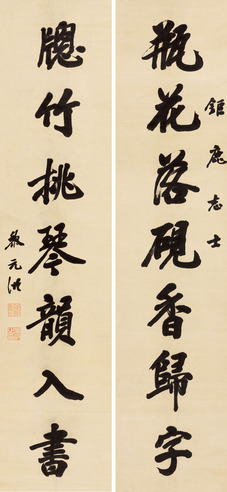 瓶花落硯香歸字
錐鹿志士
牎竹挑琴韻入書
黎元洪